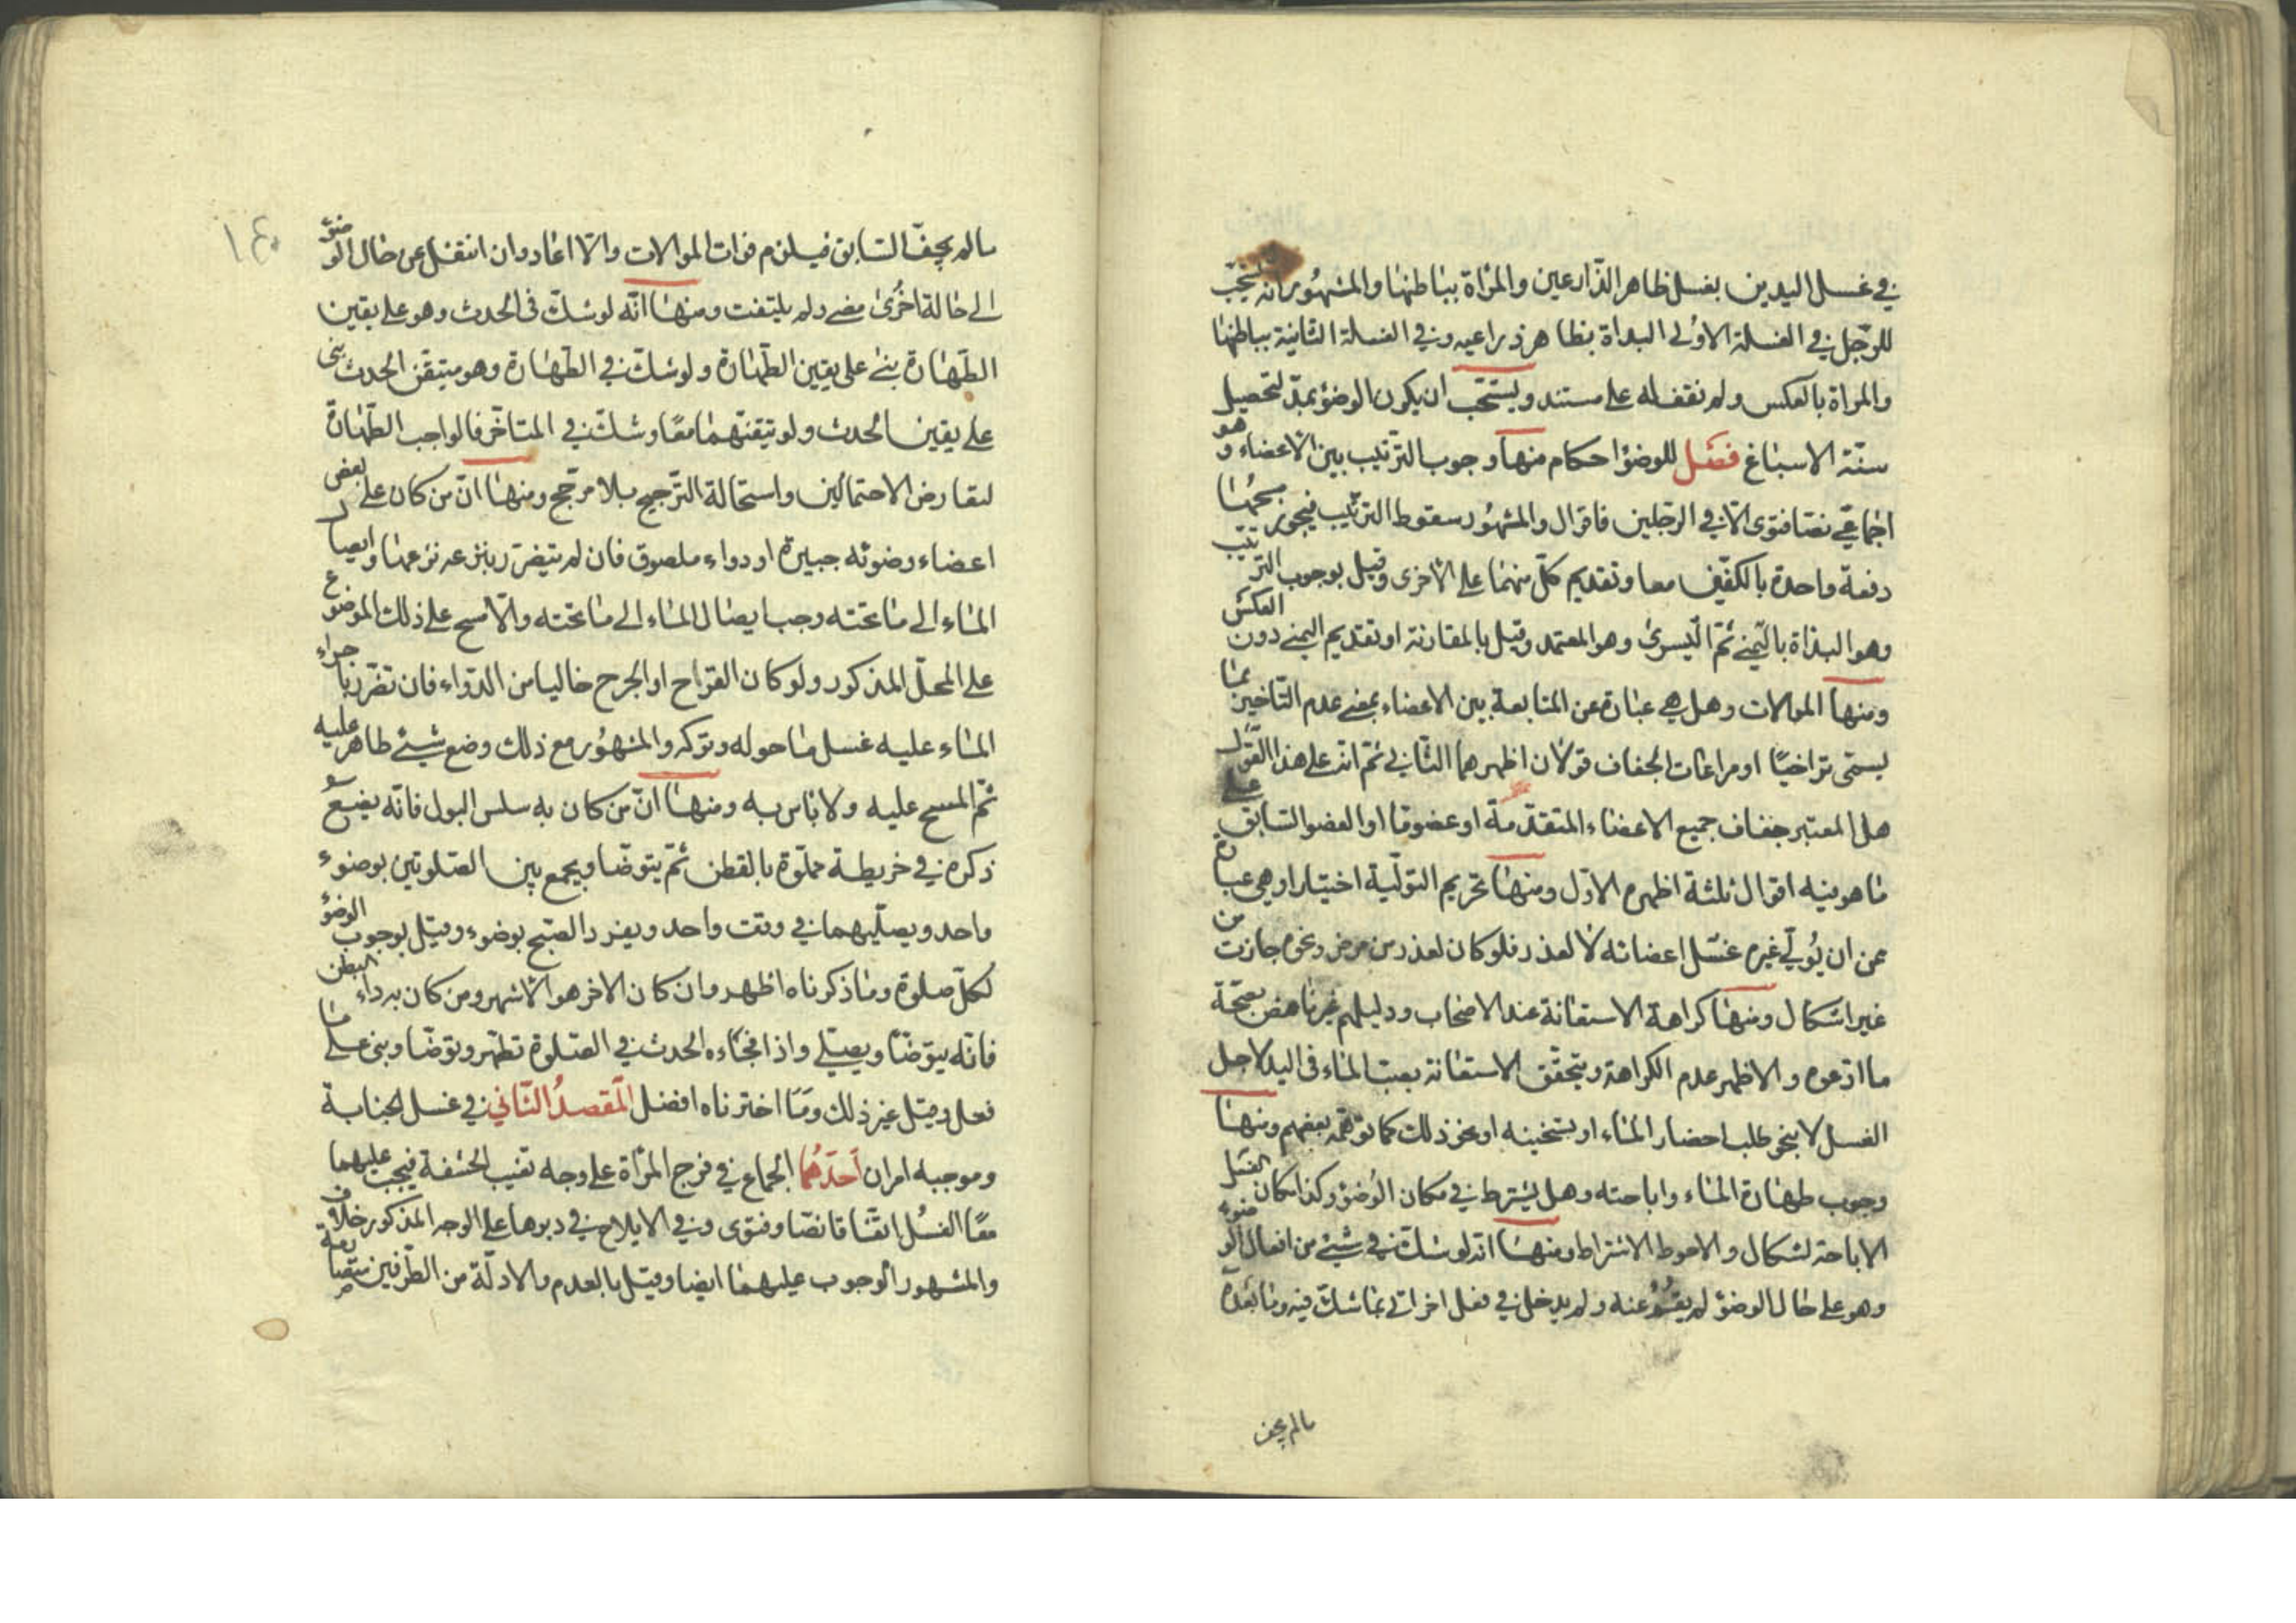 في غسل اليدين بغسل ظاهر الذارعين والمرأة بباطنها والمشهور انه يستحب
للرجل في الغسلة الاولى البداة بظاهر ذراعيه وفي الغسلة الثانية بباطنها
والمراة بالعكس ولم نقف له على مستند ويستحب ان يكون الوضوء بمد لتحصيل
سنة الاسباغ فصل للوضوء احكام منها وجوب الترتيب بين الاعضاء وهو
اجماعي نصا فتوى الا في الرجلين فاقوال والمشهور سقوط الترتيب فيجوز مسحهما
دفعة واحدة بالكفين معا وتقديم كل منهما على الاخرى وقيل بوجوب الترتيب
وهو البداة باليمنى ثم اليسرى وهو المعتمد وقيل بالمقارنة او تقديم اليمنى دون العكس
ومنها الموالات وهل هي عبارة عن المتابعة بين الاعضاء بمعنى عدم التاخير بما
يسمى تراخيا او مراعات الجفاف قولان اظهرهما الثاني ثم انه على هذا القول
هل المعتبر جفاف جميع الاعضاء المتقدمة او عضو ما او العضو السابق على
ما هو فيه اقوال ثلثة اظهرها الاول ومنها تحريم التولية اختيارا وهي عبارة
عن ان يولي غيره غسل اعضائه لا لعذر فلو كان لعذر من مرض ونحوه جاز من
غير اشكال ومنها كراهة الاستعانة عند الاصحاب ودليلهم غير ناهض بصحة
ما ادعوه والاظهر عدم الكراهة ويتحقق الاستعانة بصب الماء في اليد لاجل
الغسل لا بنحو طلب احضار الماء او تسخينه او نحو ذلك كما توهمه بعضهم ومنها
وجوب طهارة الماء واباحته وهل يشترط في مكان الوضوء وكذا مكان الغسل
الاباحة اشكال والاحوط الاشتراط ومنها انه لو شك في شيء من افعال الوضوء
وهو على حال الوضوء لم يقم عنه ولم يدخل في فعل اخر اتى بما شك فيه وما بعده
مالم يجف
١٤٠
مالم يجف السابق فيلزم فوات الموالات والا اعاد وان انتقل عن حال الوضوء
الى حالة اخرى مضى ولم يلتفت ومنها انه لو شك في الحدث وهو على يقين
الطهارة بنى على يقين الطهارة ولو شك في الطهارة وهو متيقن الحدث بنى
على يقين الحدث ولو تيقنهما معا وشك في المتاخر فالواجب الطهارة
لتعارض الاحتمالين واستحالة الترجيح بلا مرجح ومنها ان من كان على بعض
اعضاء وضوئه جبيرة او دواء ملصوق فان لم يتضرر بنزعه نزعها وايصال
الماء الى ما تحته وجب ايصال الماء الى ما تحته والا مسح على ذلك الموضوع
على المحل المذكور ولو كان القراح او الجرح خاليا من الدواء فان تضرر باجراء
الماء عليه غسل ما حوله وتركه والمشهور مع ذلك وضع شيء طاهر عليه
ثم المسح عليه ولا باس به ومنها ان من كان به سلس البول فانه يضع
ذكره في خريطة مملوة بالقطن ثم يتوضا ويجمع بين الصلوتين بوضوء
واحد ويصليهما في وقت واحد ويفرد الصبح بوضوء وقيل بوجوب الوضوء
لكل صلوة وما ذكرناه اظهر وان كان الاخر هو الاشهر ومن كان به داء البطن
فانه يتوضا ويصلي واذا فجاءه الحدث في الصلوة تطهر وتوضا وبنى على ما
فعل وقيل غير ذلك وما اخترناه افضل المقصد الثاني في غسل الجنابة
وموجبه امران احدهما الجماع في فرج المرأة على وجه تغيب الحشفة فيجب عليهما
معا الغسل اتفاقا نصا وفتوى وفي الايلاج في دبرها على الوجه المذكور خلاف
والمشهور الوجوب عليهما ايضا وقيل بالعدم والادلة من الطرفين متصادمة